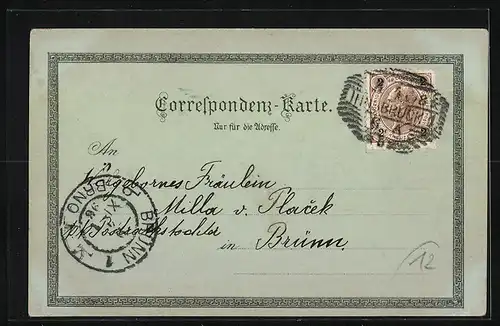 Correspondenz-Karte.
Nur für die Adresse.
An
Wohlgebornes Fräulein
Milla v. Plaček
in Brünn.
BRÜNN 1
BRNO
12